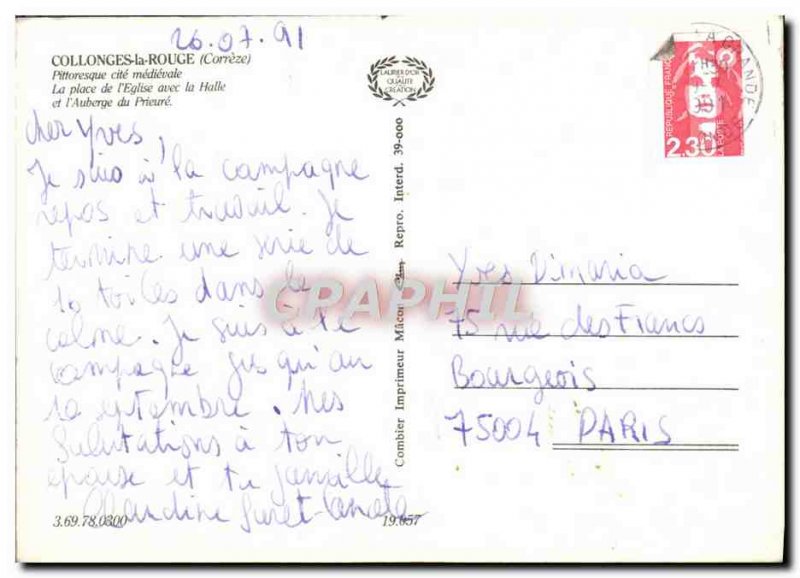 26.07.91
COLLONGES-la-ROUGE (Corrèze)
Pittoresque cité médiévale
La place de l'Eglise avec la Halle
et l'Auberge du Prieuré.
LAURIER D'OR
DE LA
QUALITÉ
CRÉATION
cher Yves,
Je suis à la campagne
repos et travail. Je
termine une série de
10 toiles dans le
calme. Je suis à la
campagne jusqu'au
10 septembre. Mes
Salutations à ton
épouse et ta famille
3.69.78.0300
19.057
Combier Imprimeur Mâcon Repro. Interd. 39-000
CPAPHIL
REPUBLIQUE FRANÇAISE
2,30
LA POSTE
Yves Dimaria
75 rue des Francs
Bourgeois
75004 PARIS